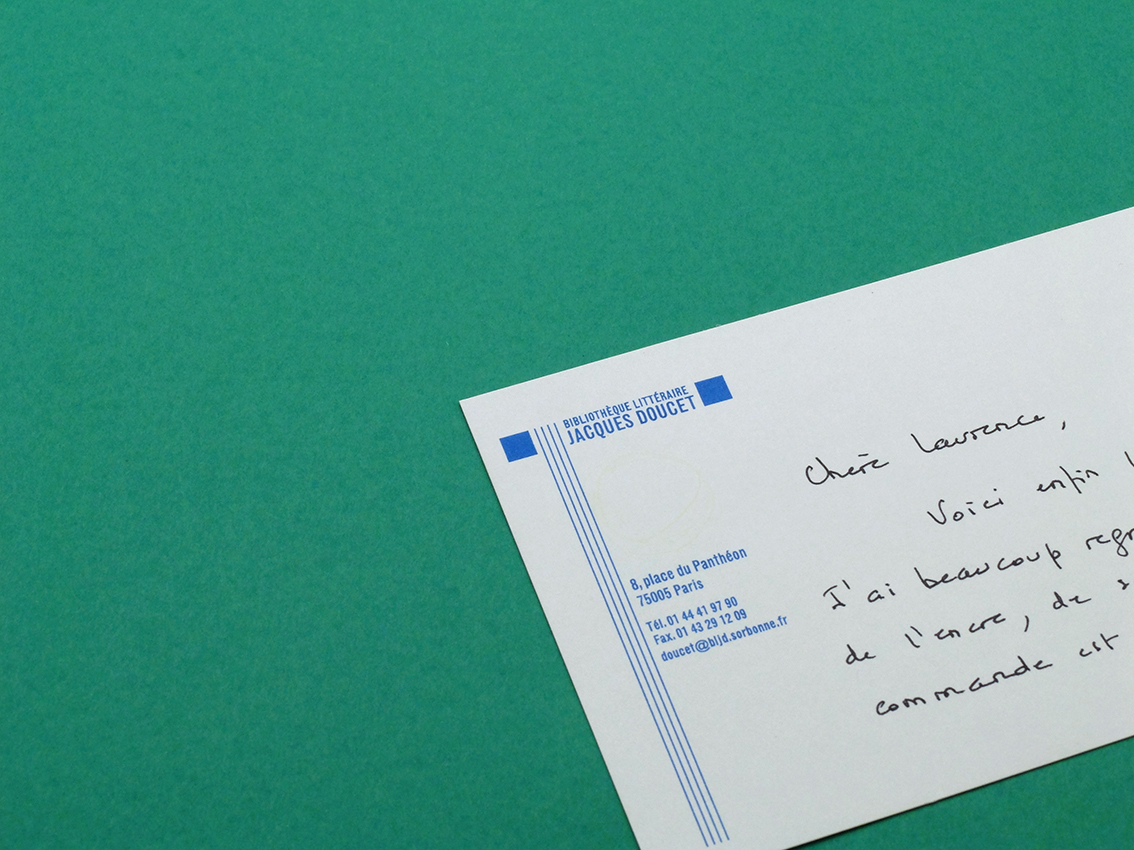 BIBLIOTHÈQUE LITTÉRAIRE
JACQUES DOUCET
8, place du Panthéon
75005 Paris
Tél. 01 44 41 97 90
Fax. 01 43 29 12 09
doucet@bljd.sorbonne.fr
Chère Laurence,
Voici enfin
J'ai beaucoup
de l'encre, de
commande est